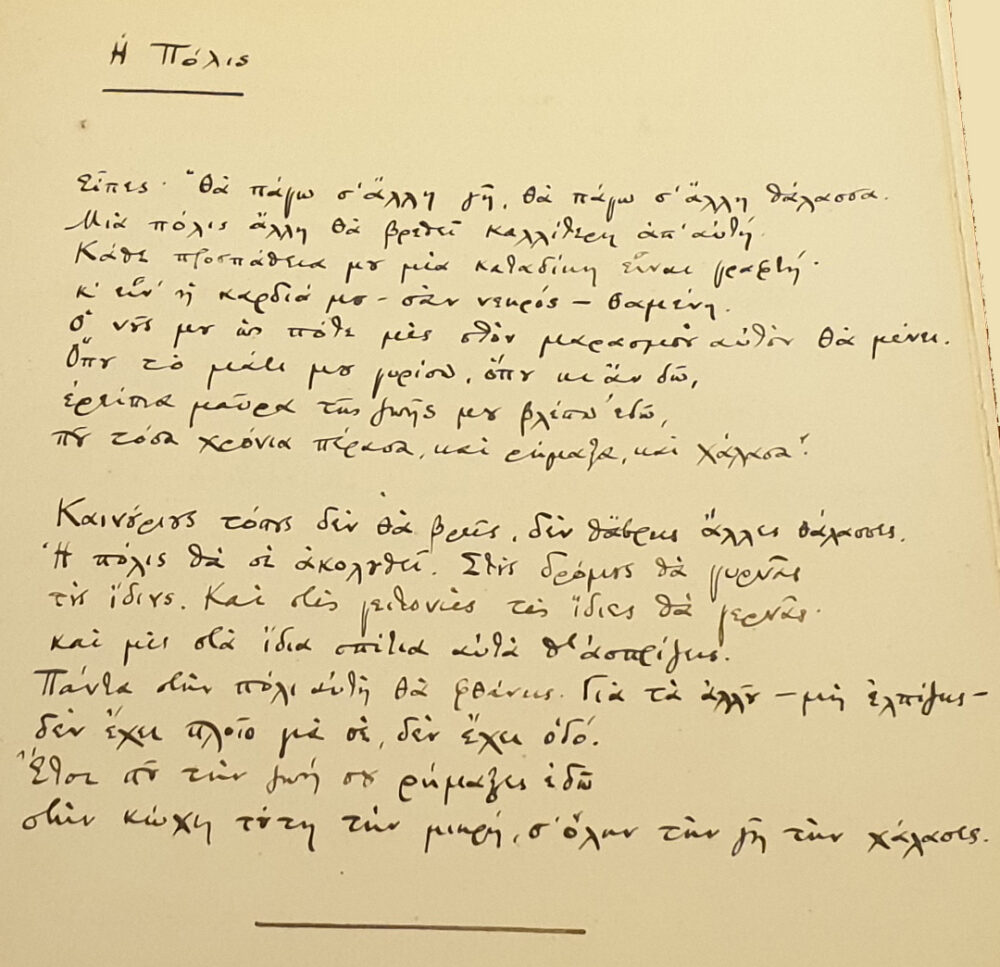 Ἡ Πόλις
Εἶπες· "Θὰ πάγω σ' ἄλλη γῆ, θὰ πάγω σ' ἄλλη θάλασσα.
Μιὰ πόλις ἄλλη θὰ βρεθεῖ καλλίτερη ἀπ' αὐτή.
Κάθε προσπάθεια μου μιὰ καταδίκη εἶναι γραφτή·
κ' εἶν' ἡ καρδιά μου – σὰν νεκρός – θαμένη.
Ὁ νοῦς μου ὡς πότε μὲς στὸν μαρασμὸν αὐτὸν θὰ μένει.
Ὅπου τὸ μάτι μου γυρίσω, ὅπου κι ἂν δῶ,
ἐρείπια μαῦρα τῆς ζωῆς μου βλέπω ἐδῶ,
ποῦ τόσα χρόνια πέρασα, καὶ ρήμαξα, καὶ χάλασα".
Καινούριους τόπους δὲν θὰ βρεῖς, δὲν θἄβρεις ἄλλες θάλασσες.
Ἡ πόλις θὰ σὲ ἀκολουθεῖ. Στοὺς δρόμους θὰ γυρνᾶς
τοὺς ἴδιους. Καὶ στὲς γειτονιὲς τὲς ἴδιες θὰ γερνᾶς·
καὶ μὲς στὰ ἴδια σπίτια αὐτὰ θ' ἀσπρίζεις.
Πάντα στὴν πόλι αὐτὴ θὰ φθάνεις. Γιὰ τὰ ἀλλοῦ – μὴ ἐλπίζεις –
δὲν ἔχει πλοῖο γιὰ σέ, δὲν ἔχει ὁδό.
Ἔτσι ποῦ τὴν ζωή σου ρήμαξες ἐδῶ
στὴν κώχη τούτη τὴν μικρή, σ' ὅλην τὴν γῆ τὴν χάλασες.